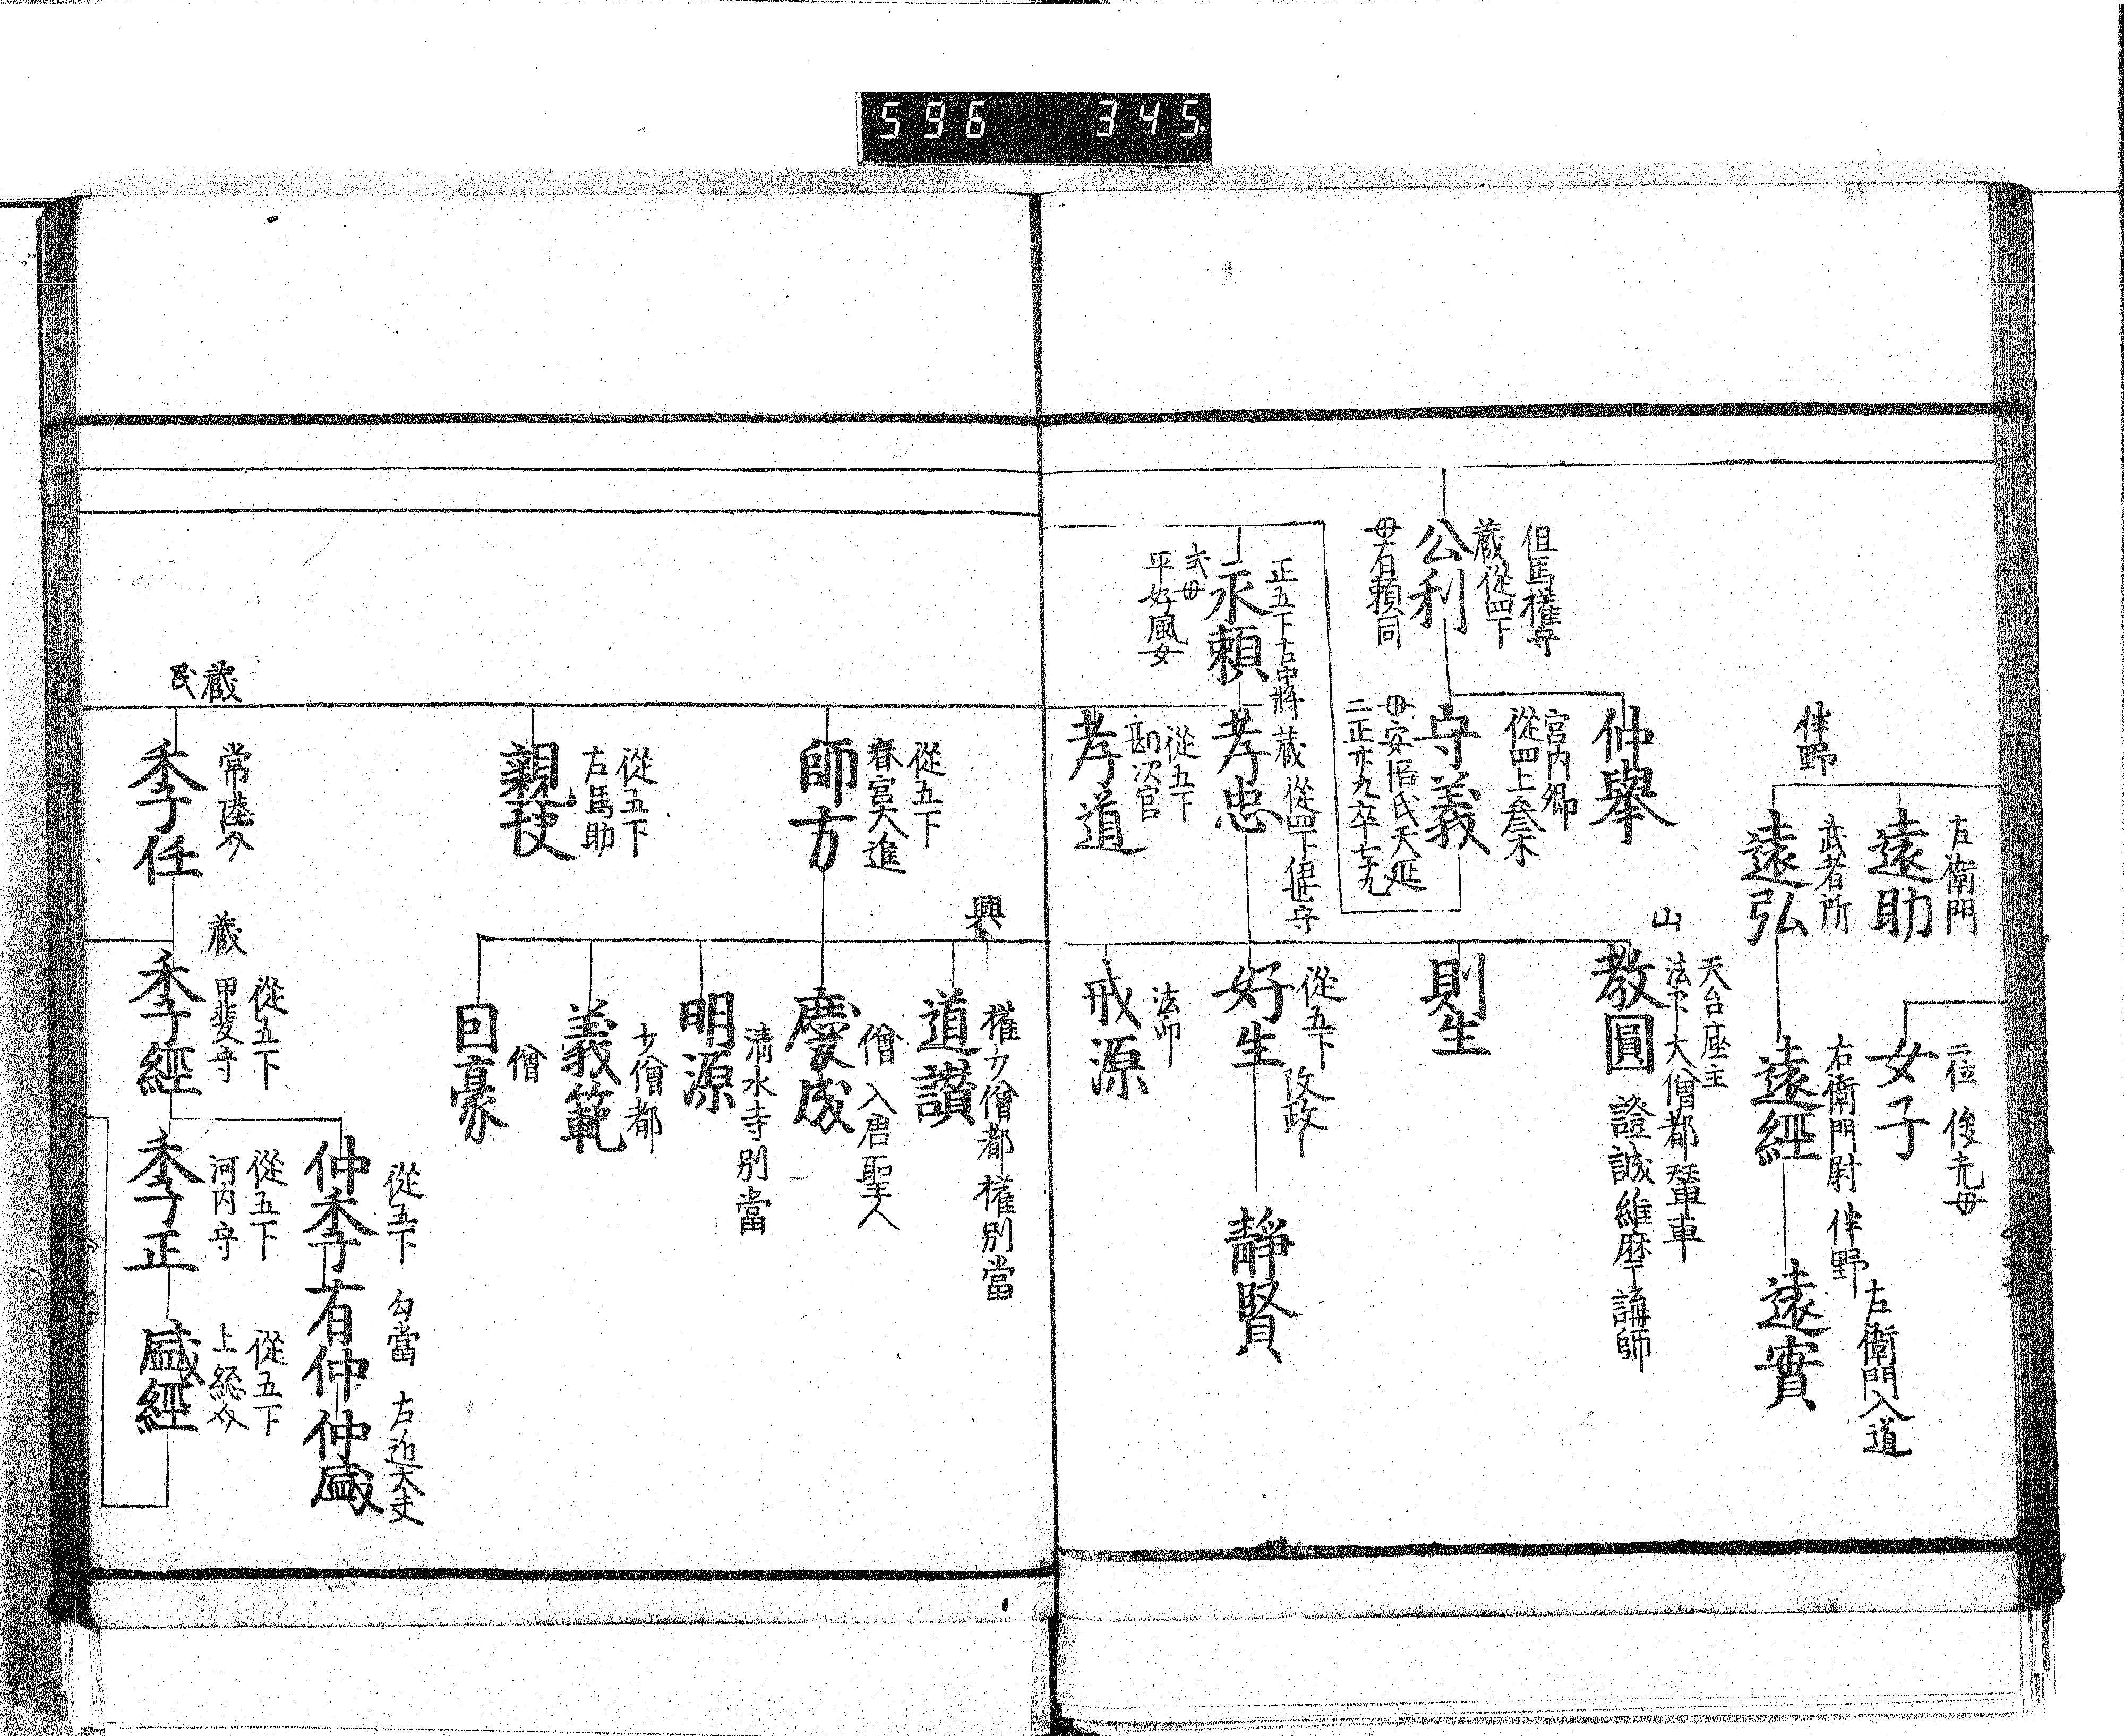 596 345
左衛門
遠助
伴野
武者所
遠弘
二位 俊光母
女子
右衛門尉 伴野
遠經
左衛門入道
遠實
仲舉
山
天台座主
法下大僧都 輦車
教圓
證誠 維广講師
但馬權守
蔵 從四下
公利
母有頼同
宮内卿
從四上
守義
母安倍氏 天延
二正 卒七十九
則生
正五下右中將
永頼
弍母
平好風女
蔵 從四下 守
孝忠
從五下
好生
靜賢
從五下
勘次官
孝道
法印
戒源
從五下
春宮大進
師方
興
權少僧都 權別當
道讃
僧 入唐聖人
慶成
清水寺別當
明源
少僧都
義範
僧
回豪
從五下
右馬助
親使
蔵
民
常陸介
季任
蔵
從五下
甲斐守
季經
從五下 勾當 右近大夫
仲季 有仲 仲盛
從五下
河内守
季正
從五下
上総介
盛經